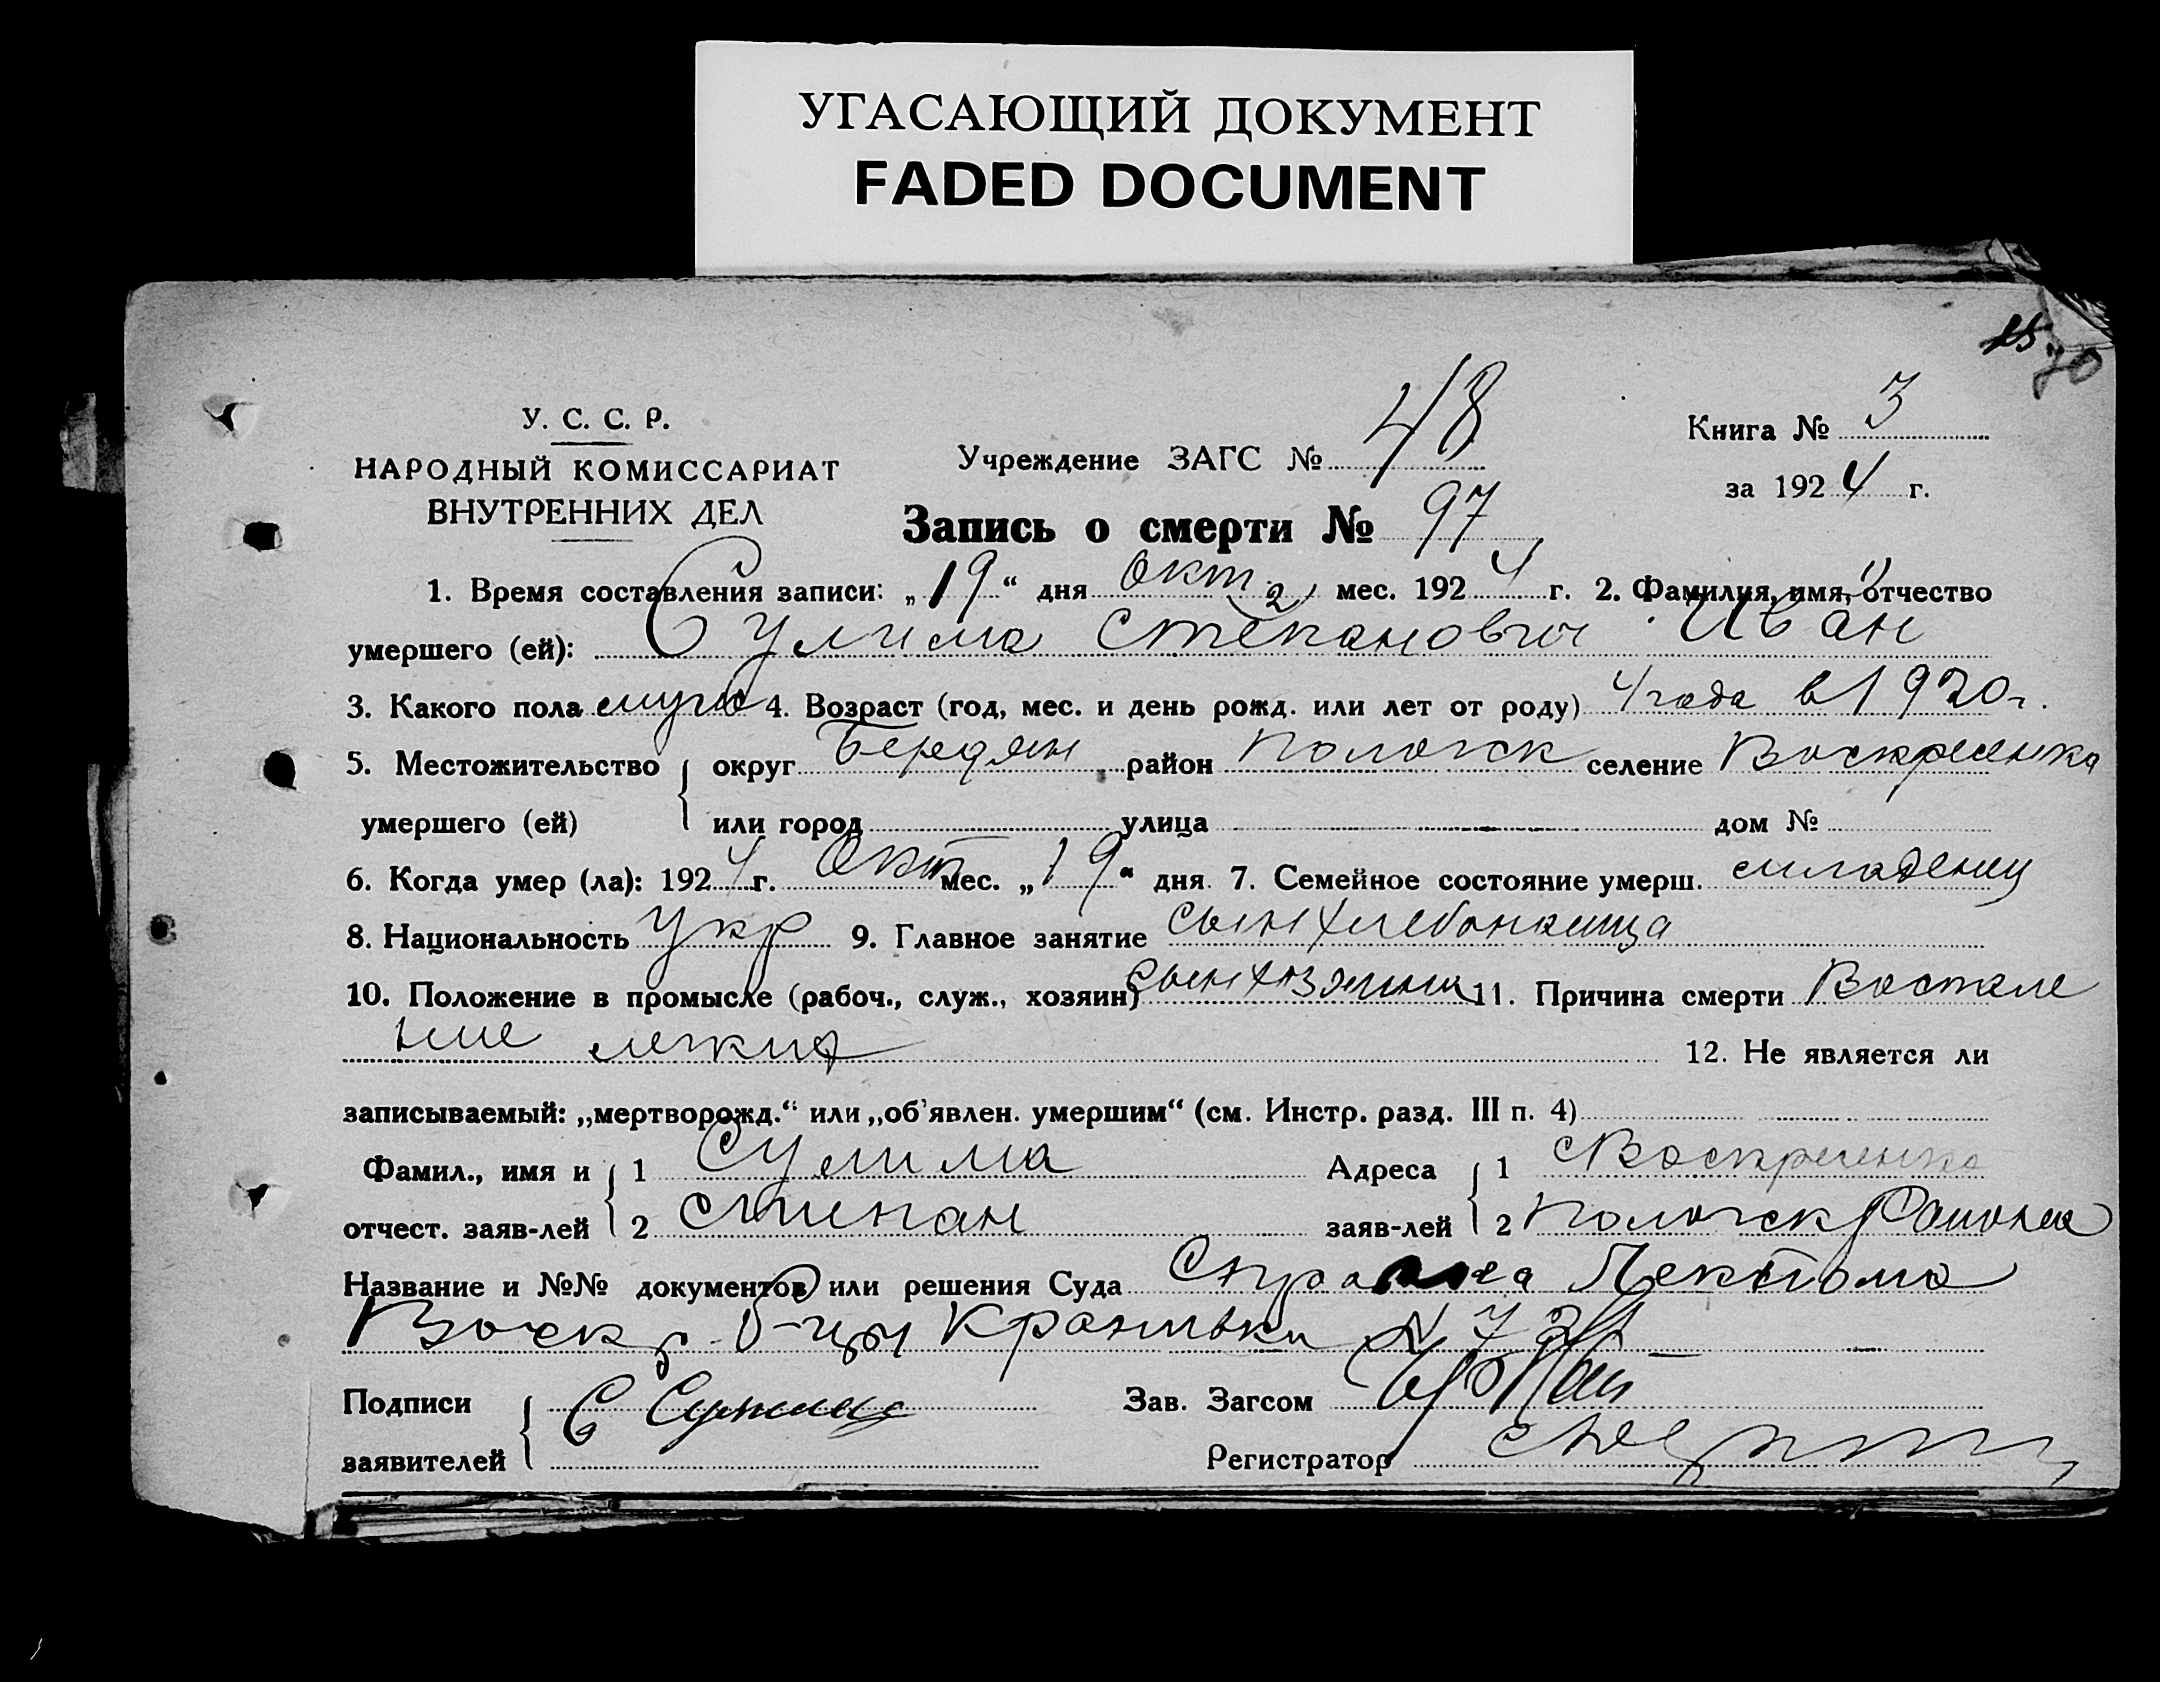 УГАСАЮЩИЙ ДОКУМЕНТ
FADED DOCUMENT
70
У. С. С. Р.
НАРОДНЫЙ КОМИССАРИАТ
ВНУТРЕННИХ ДЕЛ
Учреждение ЗАГС № 48
Книга № 3
за 1924 г.
Запись о смерти № 97
1. Время составления записи: „19“ дня Окт мес. 1924 г. 2. Фамилия, имя, отчество
умершего (ей): Сулима Степанович Иван
3. Какого пола муж 4. Возраст (год, мес. и день рожд. или лет от роду) 4 года в 1920 г.
5. Местожительство округ Бердян район Пологск селение Воскресенка
умершего (ей) или город улица дом №
6. Когда умер (ла): 1924 г. Окт мес. „19“ дня 7. Семейное состояние умерш. младенец
8. Национальность Укр 9. Главное занятие сын
10. Положение в промысле (рабоч., служ., хозяин) сын хозяина 11. Причина смерти Воспале
ние легких 12. Не является ли
записываемый: „мертворожд.“ или „об'явлен. умершим“ (см. Инстр. разд. III п. 4)
Фамил., имя и 1 Сулима Адреса 1 с Воскресенка
отчест. заяв-лей 2 Степан заяв-лей 2 Пологск Района
Название и №№ документов или решения Суда Справка Лекпома
Воскр. б-цы №
Подписи С Сулима Зав. Загсом
заявителей Регистратор